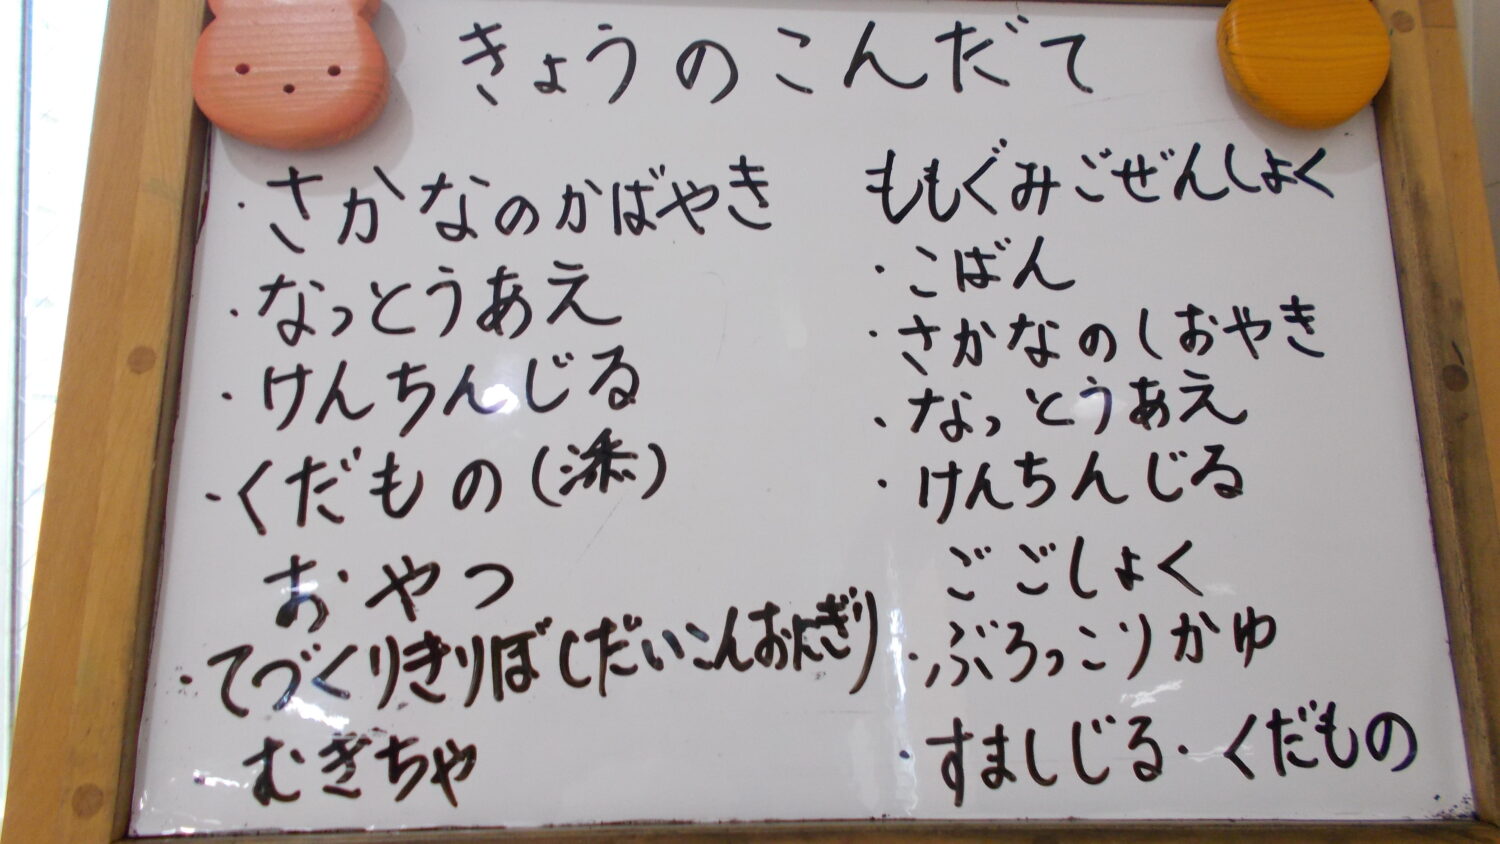 きょうのこんだて
・さかなのかばやき
・なっとうあえ
・けんちんじる
・くだもの(添)
おやつ
・てづくりきりぼしだいこんおにぎり
・むぎちゃ
ももぐみごぜんしょく
・こばん
・さかなのしおやき
・なっとうあえ
・けんちんじる
ごごしょく
・ぶろっこりかゆ
・すましじる・くだもの